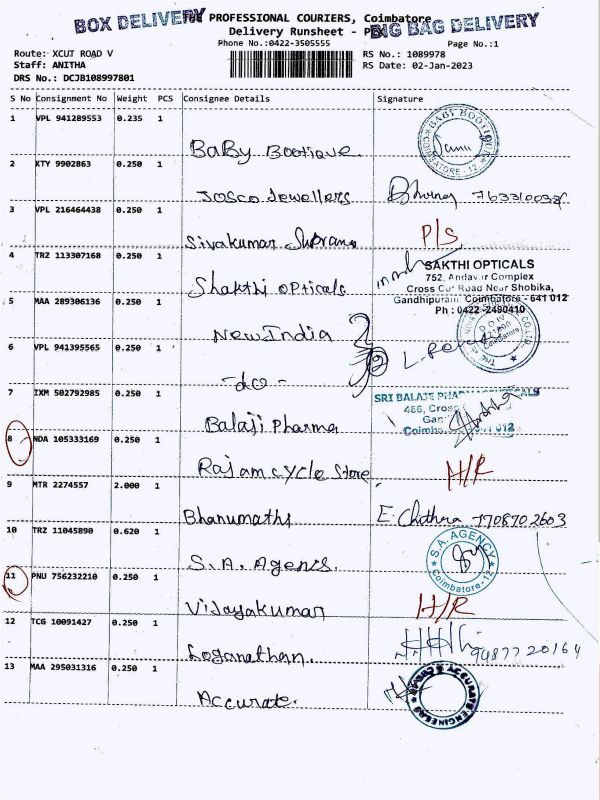 BOX DELIVERY THE PROFESSIONAL COURIERS, Coimbatore BIG BAG DELIVERY
Delivery Runsheet -
Phone No.:0422-3505555 Page No.:1
Route: XCUT ROAD V RS No.: 1089978
Staff: ANITHA RS Date: 02-Jan-2023
DRS No.: DCJB108997801
S No Consignment No Weight PCS Consignee Details Signature
1 VPL 941289553 0.235 1
BaBy Bootique BABY BOOTIQUE
2 KTY 9902863 0.250 1
Josco Jewellers
3 VPL 216464438 0.250 1
Sivakumar P/S
4 TRZ 113307168 0.250 1
Shakthi opticals SAKTHI OPTICALS
752, Andavar Complex
Cross Cut Road Near Shobika,
Gandhipuram Coimbatore - 641 012
Ph : 0422 -2490410
5 MAA 289306136 0.250 1
New India
6 VPL 941395565 0.250 1
-do-
7 IXM 502792985 0.250 1
Balaji Pharma SRI BALAJE
486, Cross
8 NDA 105333169 0.250 1
Rajam cycle Store. H/R
9 MTR 2274557 2.000 1
Bhanumathi E. Chithra 7708702603
10 TRZ 11045890 0.620 1
S.A. Agents. S.A. AGENCY Coimbatore-12
11 PNU 756232210 0.250 1
Vijayakumar H/R
12 TCG 10091427 0.250 1
Loganathan. 9487720164
13 MAA 295031316 0.250 1
Accurate. ACCURATE ENGINEERS